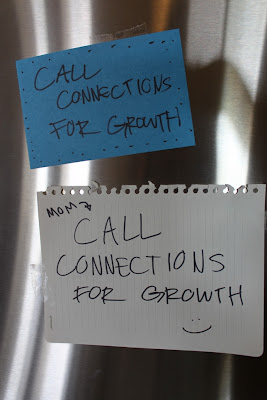 CALL
CONNECTIONS
FOR GROWTH
MOM
CALL
CONNECTIONS
FOR GROWTH